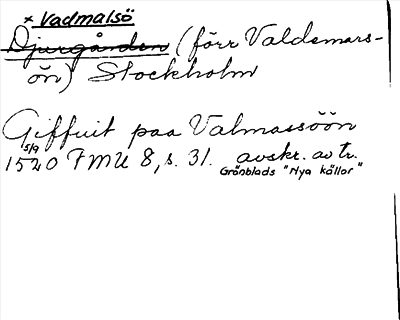 * Vadmalsö
Djurgården (förr Valdemars-
ön) Stockholm
Giffuit paa Valmassöön
5/9
1520 FMU 8, s. 31. avskr. av tr.
Grönblads "Nya källor"